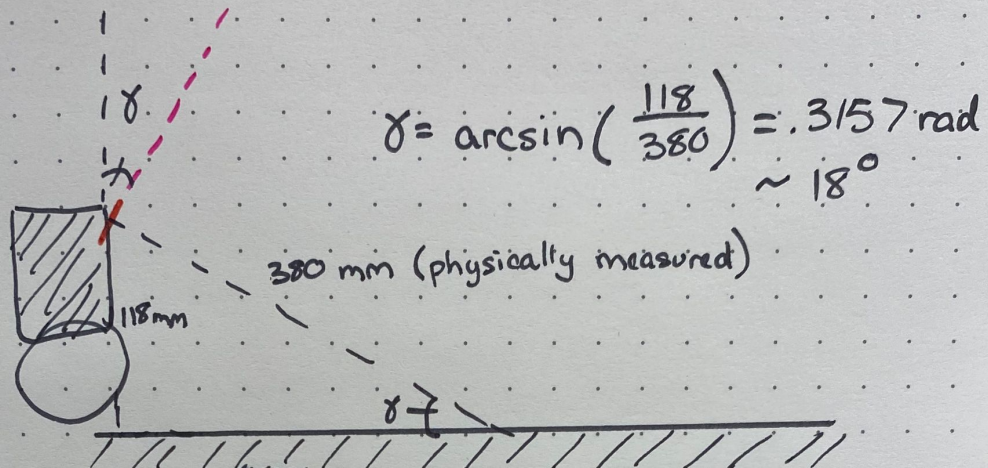 γ
γ = arcsin(118/380) = .3157 rad
~ 18°
380 mm (physically measured)
118mm
γ